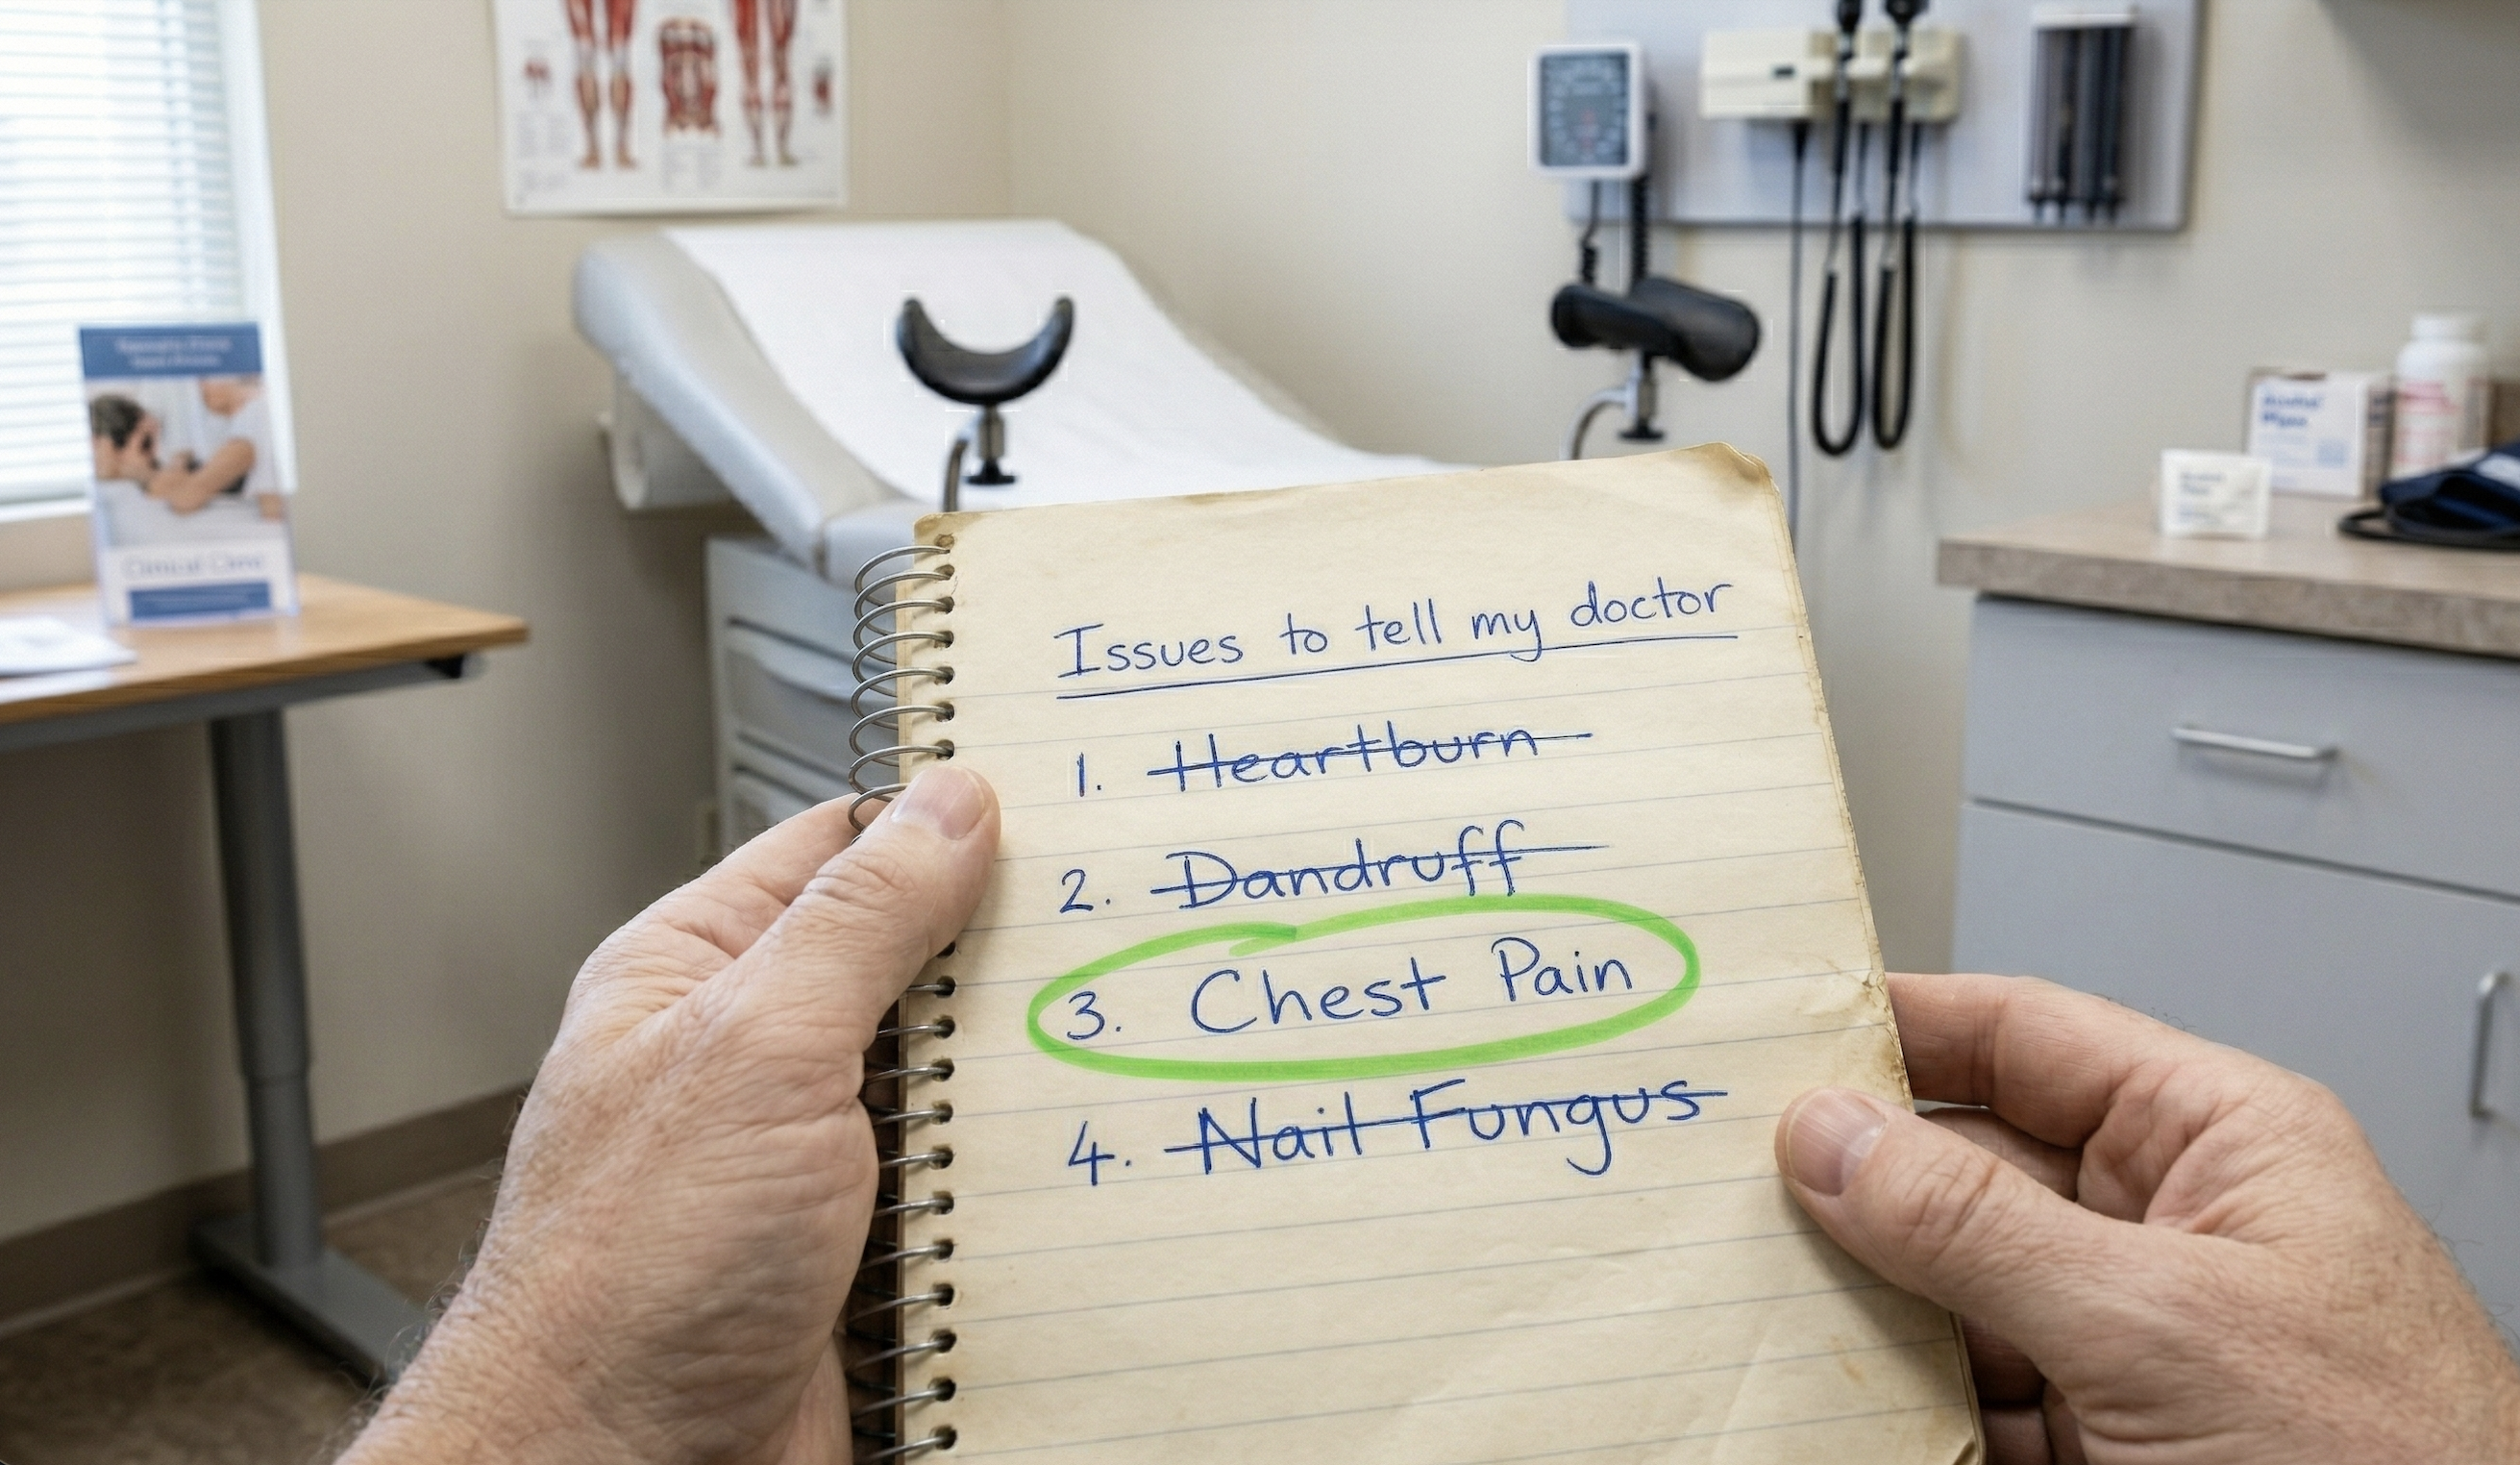 Clinical Care
Issues to tell my doctor
1. Heartburn
2. Dandruff
3. Chest Pain
4. Nail Fungus